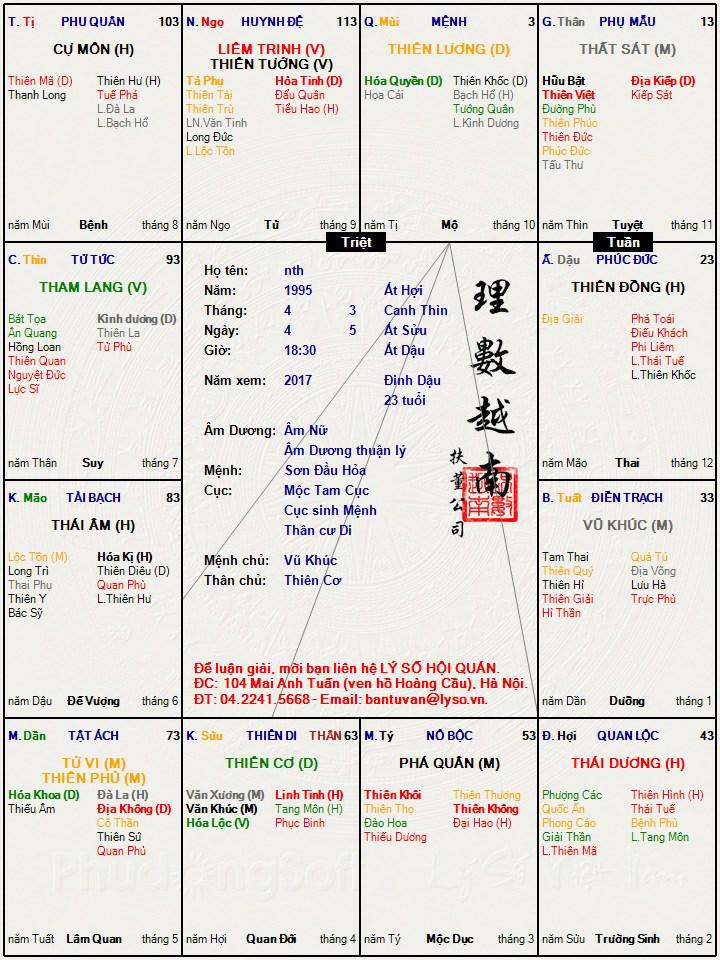 T. Tị PHU QUÂN 103
CỰ MÔN (H)
Thiên Mã (D) Thiên Hư (H)
Thanh Long Tuế Phá
L.Đà La
L.Bạch Hổ
năm Mùi Bệnh tháng 8
N. Ngọ HUYNH ĐỆ 113
LIÊM TRINH (V)
THIÊN TƯỚNG (V)
Tả Phụ Hỏa Tinh (D)
Thiên Tài Đẩu Quân
Thiên Trù Tiểu Hao (H)
LN.Văn Tinh
Long Đức
L.Lộc Tồn
năm Ngọ Tử tháng 9
Q. Mùi MỆNH 3
THIÊN LƯƠNG (D)
Hóa Quyền (D) Thiên Khốc (D)
Hoa Cái Bạch Hổ (H)
Tướng Quân
L.Kình Dương
năm Tị Mộ tháng 10
G. Thân PHỤ MẪU 13
THẤT SÁT (M)
Hữu Bật Địa Kiếp (D)
Thiên Việt Kiếp Sát
Đường Phù
Thiên Phúc
Thiên Đức
Phúc Đức
Tấu Thư
năm Thìn Tuyệt tháng 11
Triệt
Tuần
C. Thìn TỬ TỨC 93
THAM LANG (V)
Bát Tọa Kình dương (D)
Ân Quang Thiên La
Hồng Loan Tử Phù
Thiên Quan
Nguyệt Đức
Lực Sĩ
năm Thân Suy tháng 7
Họ tên: nth
Năm: 1995 Ất Hợi
Tháng: 4 3 Canh Thìn
Ngày: 4 5 Ất Sửu
Giờ: 18:30 Ất Dậu
Năm xem: 2017 Đinh Dậu
23 tuổi
Âm Dương: Âm Nữ
Âm Dương thuận lý
Mệnh: Sơn Đầu Hỏa
Cục: Mộc Tam Cục
Cục sinh Mệnh
Thân cư Di
Mệnh chủ: Vũ Khúc
Thân chủ: Thiên Cơ
理數越南
扶董公司
Để luận giải, mời bạn liên hệ LÝ SỐ HỘI QUÁN.
ĐC: 104 Mai Anh Tuấn (ven hồ Hoàng Cầu), Hà Nội.
ĐT: 04.2241.5668 - Email: bantuvan@lyso.vn.
Ấ. Dậu PHÚC ĐỨC 23
THIÊN ĐỒNG (H)
Địa Giải Phá Toái
Điếu Khách
Phi Liêm
L.Thái Tuế
L.Thiên Khốc
năm Mão Thai tháng 12
K. Mão TÀI BẠCH 83
THÁI ÂM (H)
Lộc Tồn (M) Hóa Kị (H)
Long Trì Thiên Diêu (D)
Thai Phụ Quan Phù
Thiên Y L.Thiên Hư
Bác Sỹ
năm Dậu Đế Vượng tháng 6
B. Tuất ĐIỀN TRẠCH 33
VŨ KHÚC (M)
Tam Thai Quả Tú
Thiên Quý Địa Võng
Thiên Hỉ Lưu Hà
Thiên Giải Trực Phù
Hỉ Thần
năm Dần Dưỡng tháng 1
M. Dần TẬT ÁCH 73
TỬ VI (M)
THIÊN PHỦ (M)
Hóa Khoa (D) Đà La (H)
Thiếu Âm Địa Không (D)
Cô Thần
Thiên Sứ
Quan Phủ
năm Tuất Lâm Quan tháng 5
K. Sửu THIÊN DI THÂN 63
THIÊN CƠ (D)
Văn Xương (M) Linh Tinh (H)
Văn Khúc (M) Tang Môn (H)
Hóa Lộc (V) Phục Binh
năm Hợi Quan Đới tháng 4
M. Tý NÔ BỘC 53
PHÁ QUÂN (M)
Thiên Khôi Thiên Thương
Thiên Thọ Thiên Không
Đào Hoa Đại Hao (H)
Thiếu Dương
năm Tý Mộc Dục tháng 3
Đ. Hợi QUAN LỘC 43
THÁI DƯƠNG (H)
Phượng Các Thiên Hình (H)
Quốc Ấn Thái Tuế
Phong Cáo Bệnh Phù
Giải Thần L.Tang Môn
L.Thiên Mã
năm Sửu Trường Sinh tháng 2
Phudongsoft
Lý Số Việt Nam